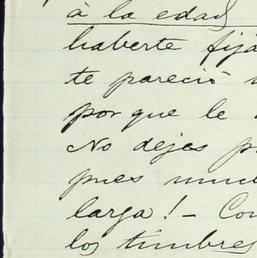 á la edad
haberte fija
te pareció
porque le
No dejes p
pues much
larga! - Con
los timbres